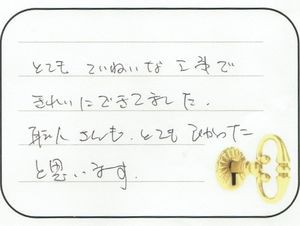 とても ていねいな 工事で
きれいにできてました.
職人さんも、とても よかった
と思います.